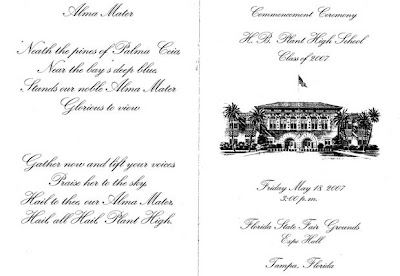 Alma Mater
'Neath the pines of Palma Ceia,
Near the bay's deep blue,
Stands our noble Alma Mater
Glorious to view.
Gather now and lift your voices
Praise her to the sky,
Hail to thee, our Alma Mater,
Hail, all Hail, Plant High.
Commencement Ceremony
H. B. Plant High School
Class of 2007
Friday May 18, 2007
3:00 p.m.
Florida State Fair Grounds
Expo Hall
Tampa, Florida